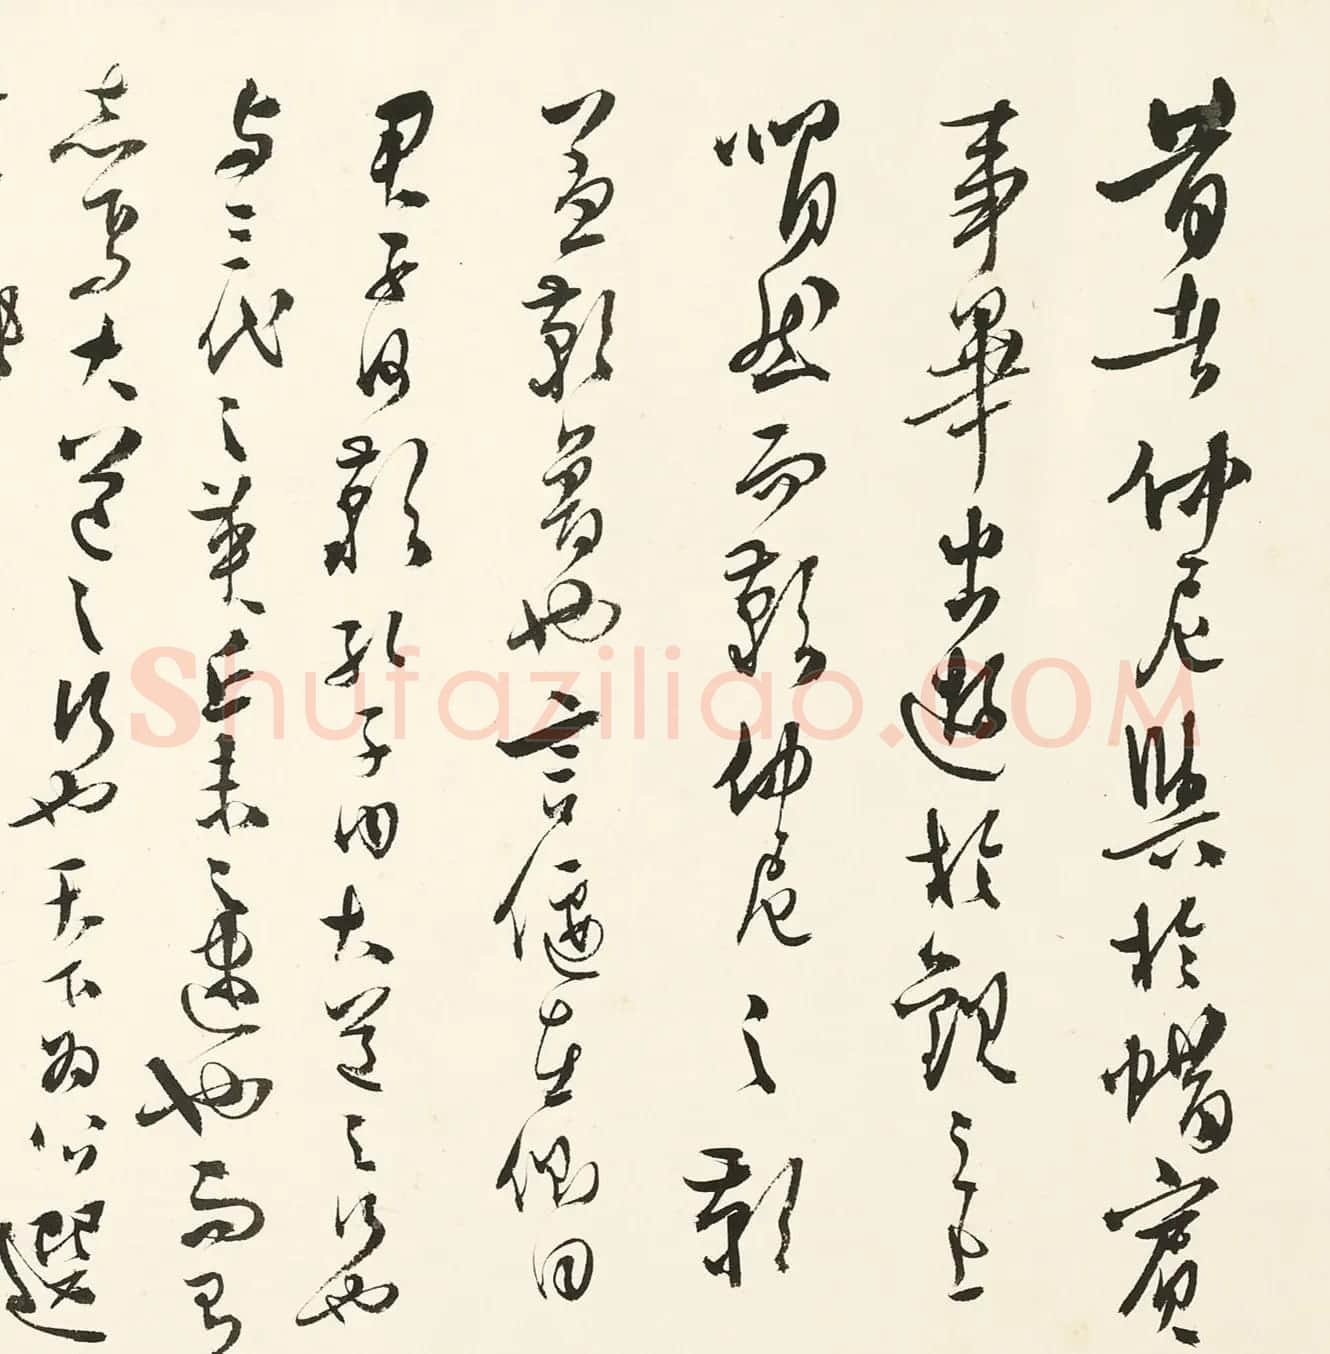 昔者仲尼與於蜡賓
事畢出遊於觀之上
喟然而歎仲尼之歎
蓋歎魯也言偃在側曰
君子何歎孔子曰大道之行也
与三代之英丘未之逮也而有
志焉大道之行也天下為公選
Shufaziliao.COM